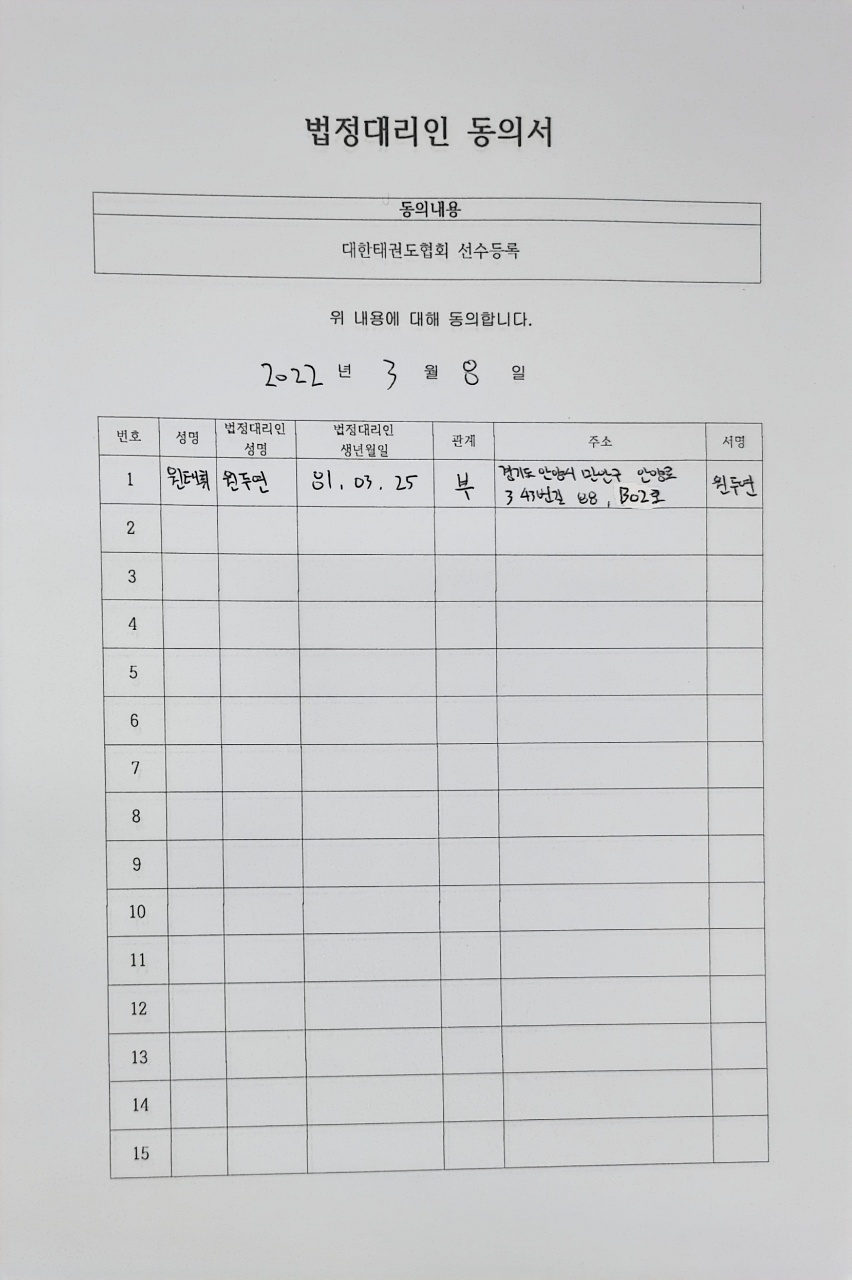 법정대리인 동의서
동의내용
대한태권도협회 선수등록
위 내용에 대해 동의합니다.
2022 년 3 월 8 일
번호 성명 법정대리인 성명 법정대리인 생년월일 관계 주소 서명
1 원두연 81. 03. 25 부 경기도 안양시 만안구 안양로 343번길 B02호 원두연
2
3
4
5
6
7
8
9
10
11
12
13
14
15